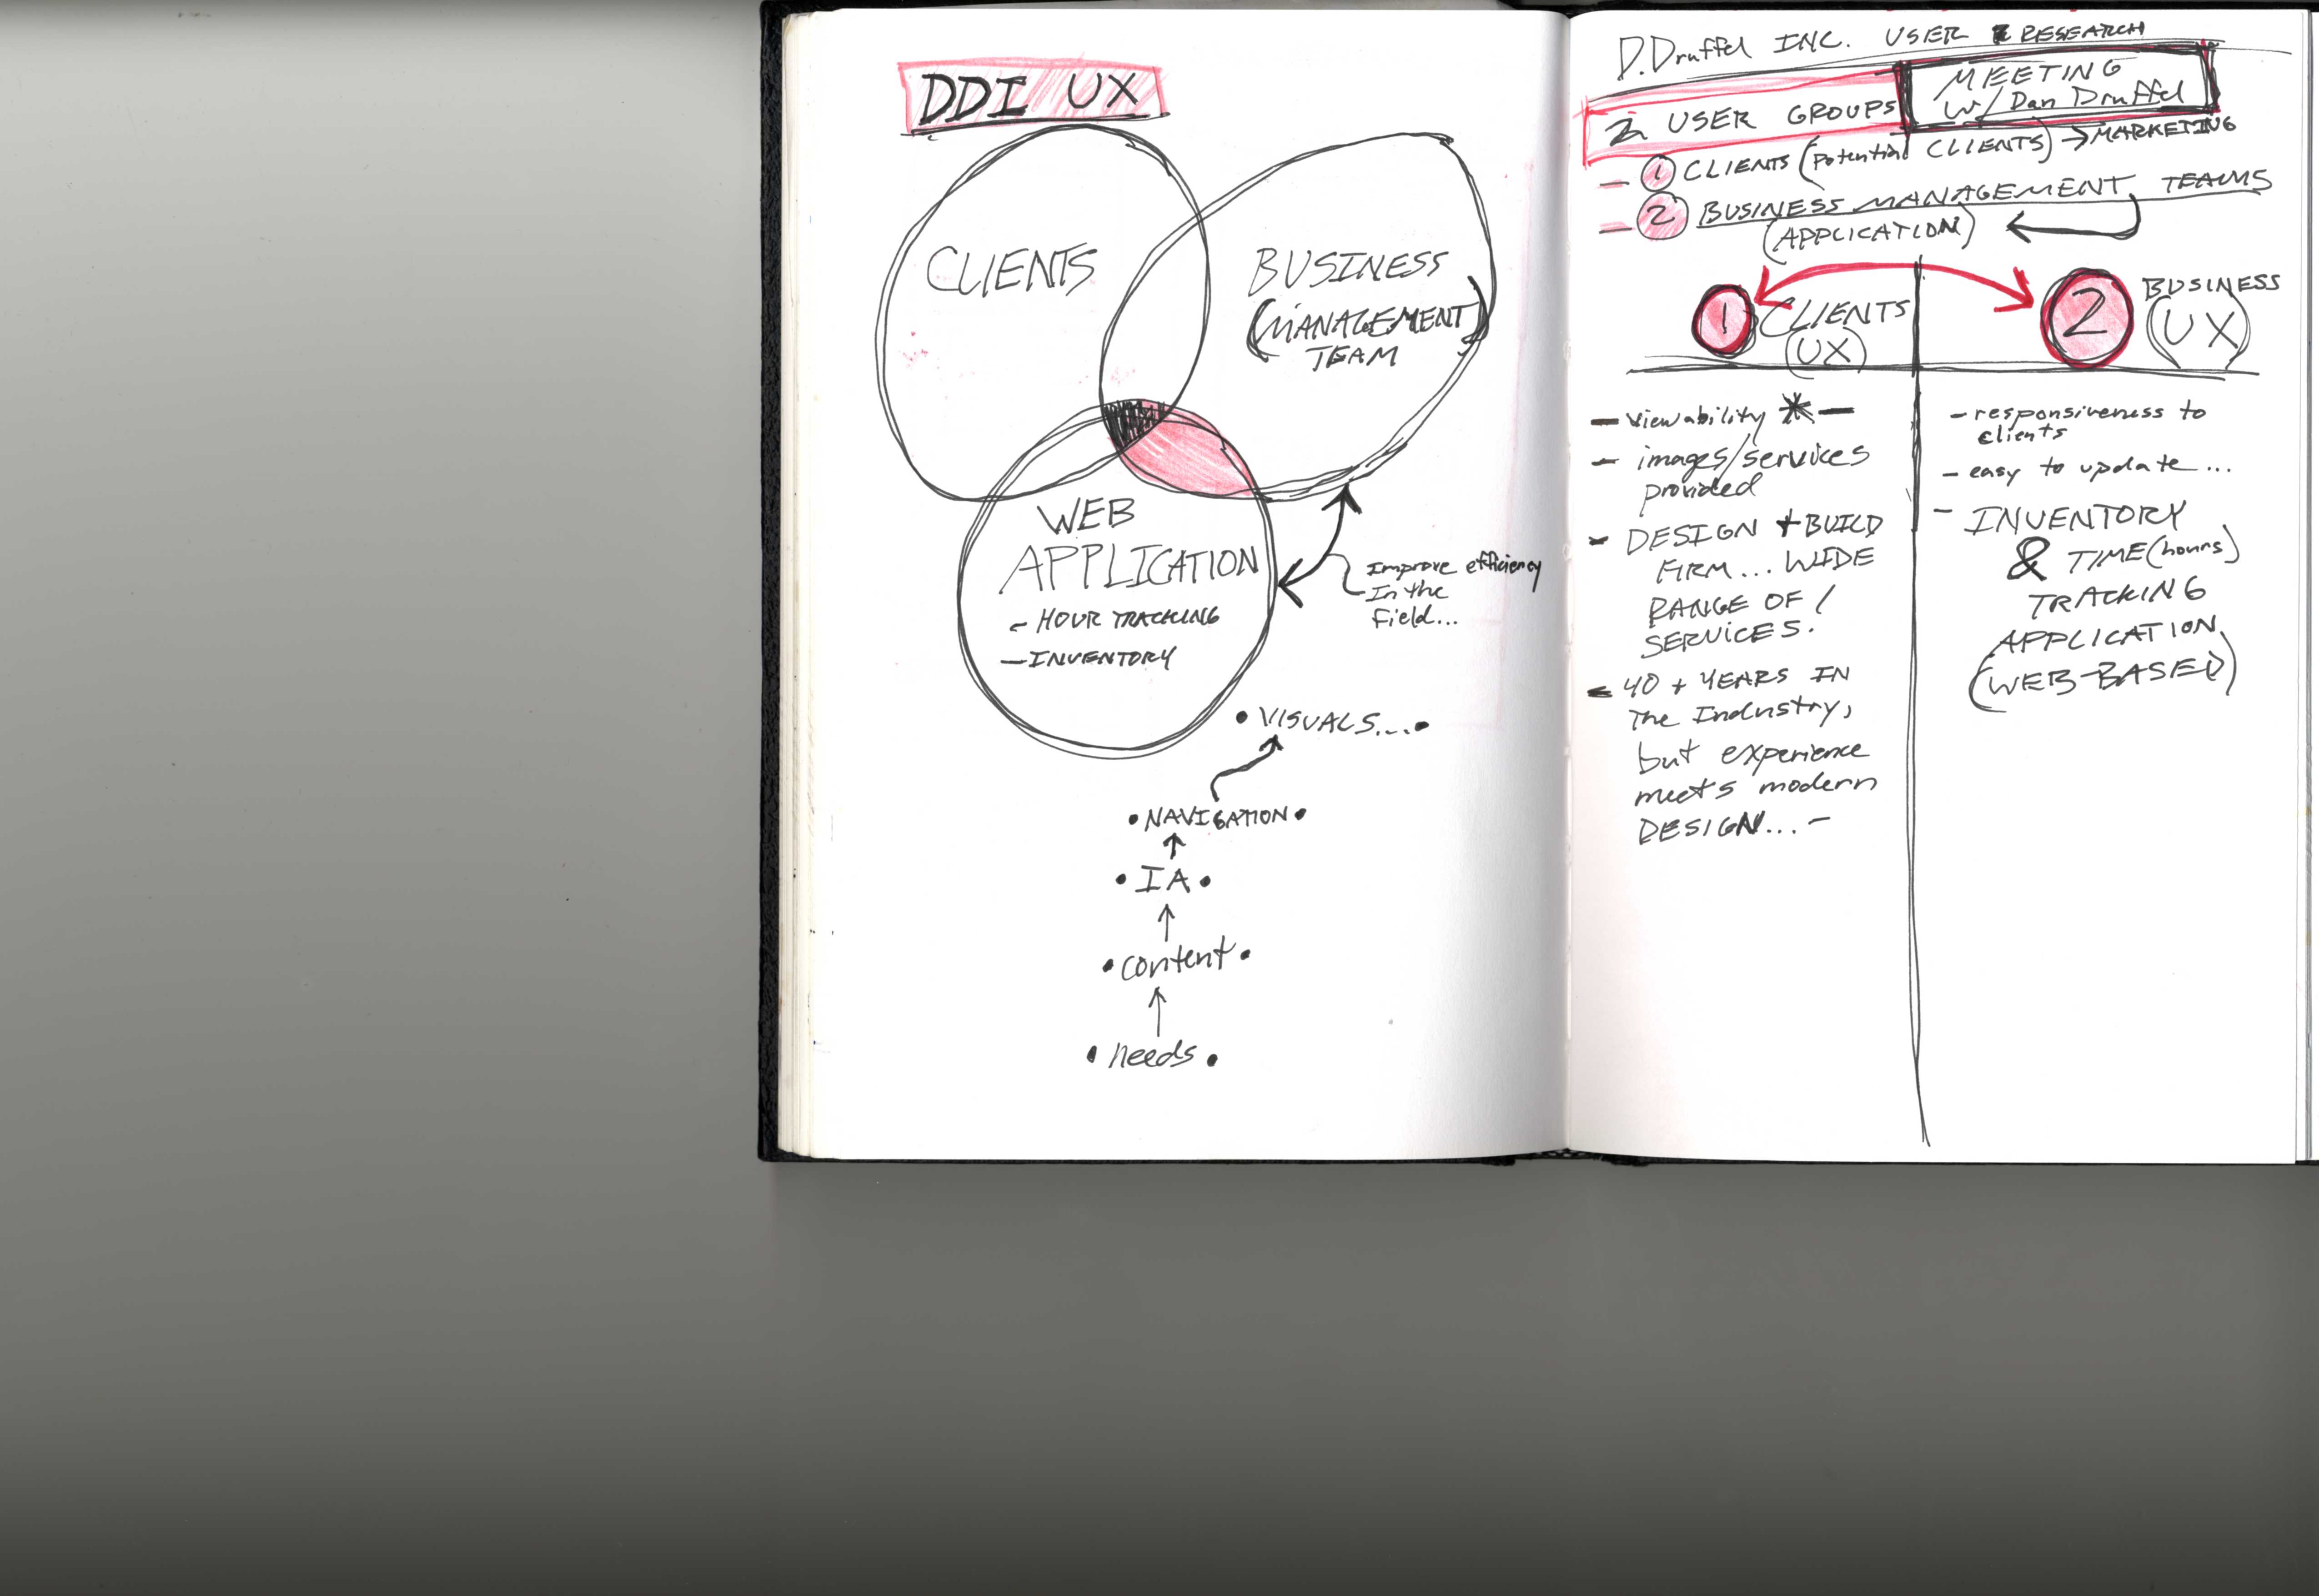 DDI UX
CLIENTS
BUSINESS
(MANAGEMENT)
TEAM
WEB
APPLICATION
- HOUR TRACKING
- INVENTORY
Improve efficiency
In the
Field...
• VISUALS....•
• NAVIGATION •
• IA •
• content •
• needs •
D.Druffel INC. USER RESEARCH
MEETING
W/ Dan Druffel
2 USER GROUPS
- 1 CLIENTS (Potential CLIENTS) → MARKETING
- 2 BUSINESS MANAGEMENT TEAMS
(APPLICATION)
1 CLIENTS
(UX)
- viewability * -
- images/services
provided
- DESIGN + BUILD
FIRM... WIDE
RANGE OF
SERVICES!
- 40 + YEARS IN
The Industry,
but experience
meets modern
DESIGN... -
2 BUSINESS
(UX)
- responsiveness to
clients
- easy to update ...
- INVENTORY
& TIME (hours)
TRACKING
APPLICATION
(WEB-BASED)